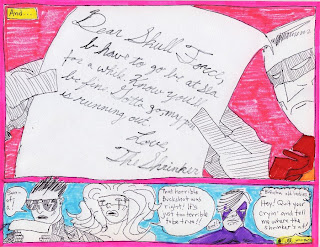 And...
Dear Skull Force,
I have to go be at sea
for a while. I know you'll
be fine. Gotta go my ph
is running out.
Love,
The Shrinker
That horrible
Buckshot was
right! It's
just too terrible
to be true!!
Hey! Quit your
cryin' and tell
me where the
shrinker's at!